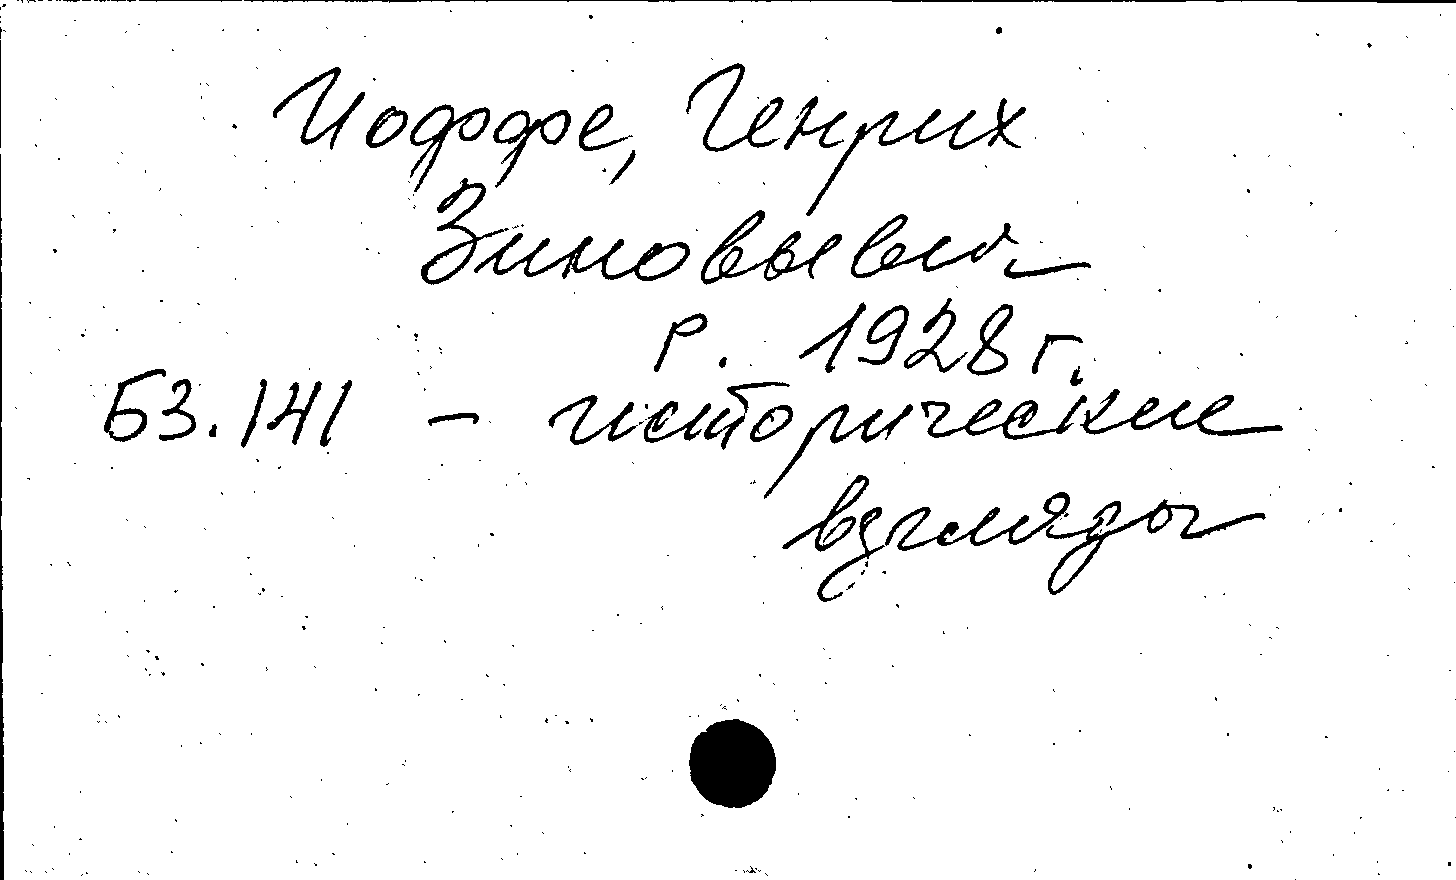 Иоффе, Генрих
Зиновьевич
р. 1928 г.
Б3.141 - исторические
взгляды